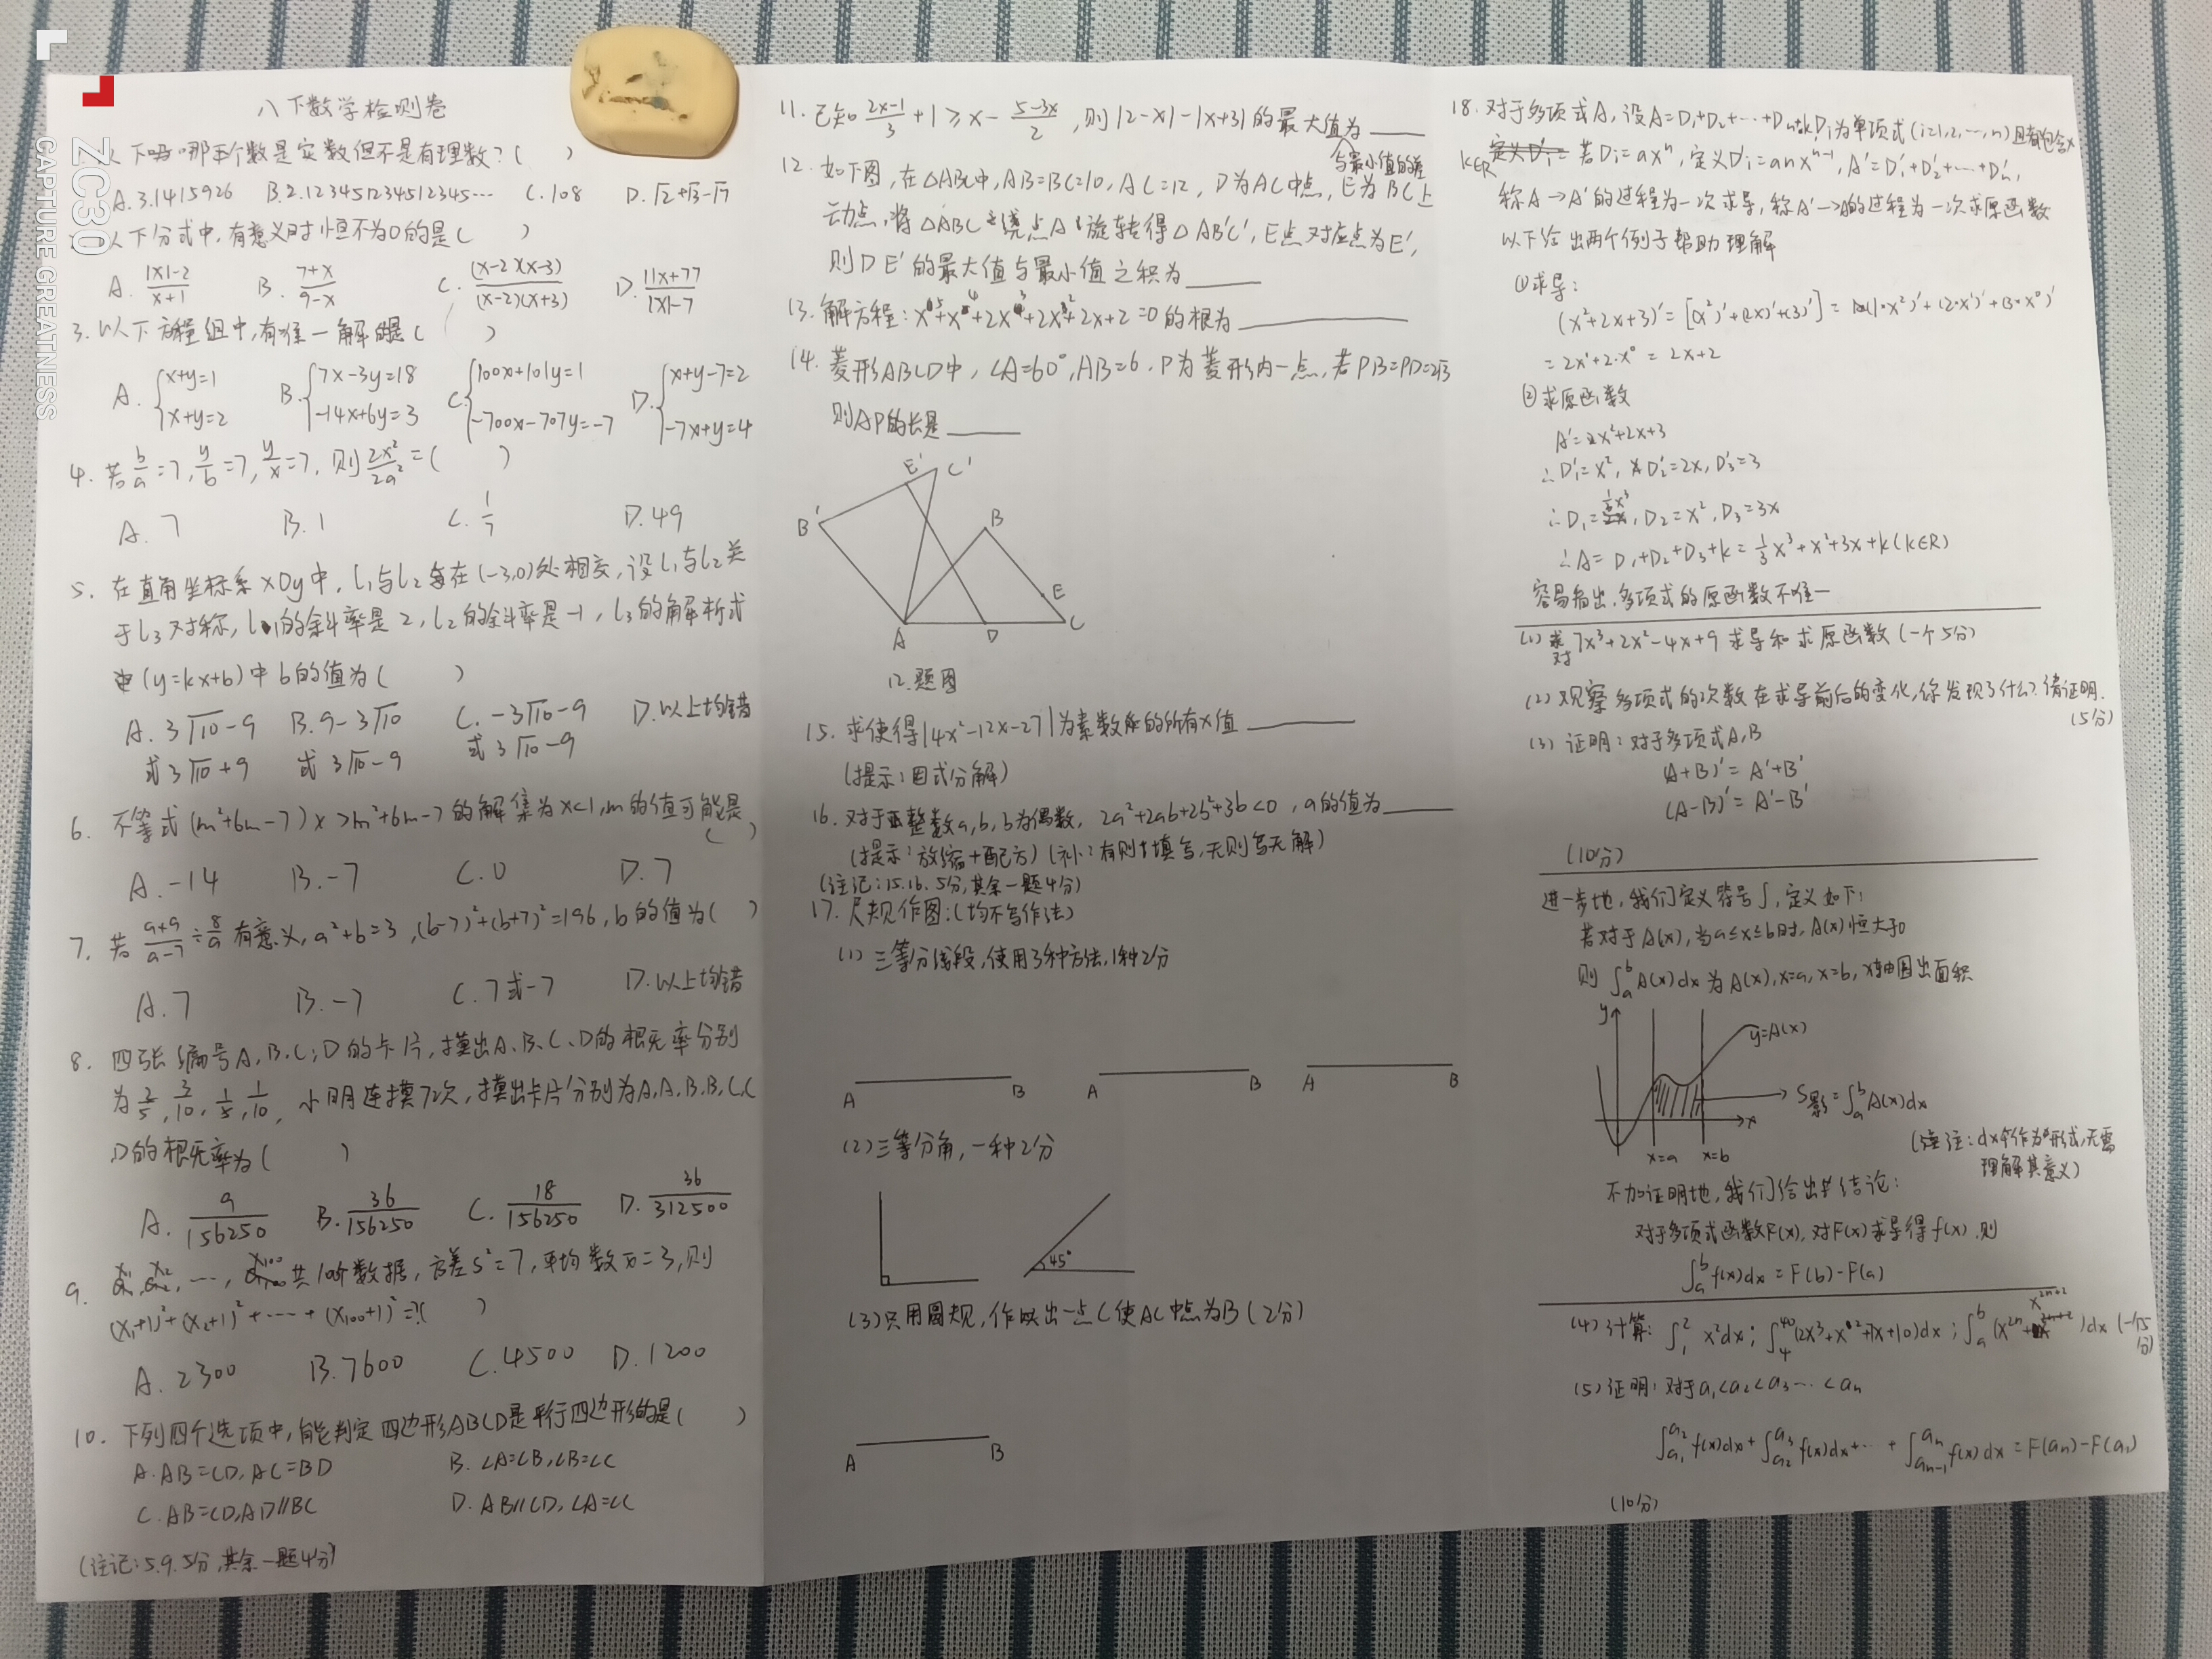 ZC30
CAPTURE GREATNESS
八下数学检测卷
以下哪个数是实数但不是有理数？( )
A.3.1415926 B.2.123451234512345… C.108 D.√2+√3-√7
以下分式中，有意义时恒不为0的是( )
A. (|x|-2)/(x+1) B. (7+x)/(9-x) C. (x-2)(x-3)/(x-2)(x+3) D. (11x+77)/(|x|-7)
3.以下方程组中，有唯一解的是( )
A. {x+y=1 x+y=2 B. {7x-3y=18 -14x+6y=3 C. {100x+101y=1 -700x-707y=-7 D. {x+y-7=2 -7x+y=4
4.若b/a=7, y/b=7, y/x=7, 则2x²/2a²=( )
A.7 B.1 C.1/7 D.49
5.在直角坐标系xOy中，l₁与l₂在(-3,0)处相交，设l₁与l₂关
于l₃对称，l₁的斜率是2，l₂的斜率是-1，l₃的解析式
(y=kx+b)中b的值为( )
A.3√10-9 B.9-3√10 C.-3√10-9 D.以上均错
或3√10+9 或3√10-9 或3√10-9
6.不等式(m²+6m-7)x>m²+6m-7的解集为x<1,m的值可能是
( )
A.-14 B.-7 C.0 D.7
7.若(a+9)/(a-7)÷8/a有意义,a²+b=3,(b-7)²+(b+7)²=196,b的值为( )
A.7 B.-7 C.7或-7 D.以上均错
8.四张编号A,B,C,D的卡片，摸出A、B、C、D的概率分别
为2/5, 3/10, 1/5, 1/10, 小明连摸7次，摸出卡片分别为A,A,B,B,C,C
,D的概率为( )
A. 9/156250 B. 36/156250 C. 18/156250 D. 36/312500
9. x₁,x₂,…,x₁₀₀共100个数据，方差s²=7,平均数x̄=3,则
(x₁+1)²+(x₂+1)²+……+(x₁₀₀+1)²=?( )
A.2300 B.7600 C.4500 D.1200
10.下列四个选项中，能判定四边形ABCD是平行四边形的是( )
A.AB=CD,AC=BD B.∠A=∠B,∠B=∠C
C.AB=CD,AD//BC D.AB//CD,∠A=∠C
(注记:5.9.5分,其余一题4分)
11.已知(2x-1)/3+1≥x-(5-3x)/2,则|2-x|-|x+3|的最大值为
与最小值的差
12.如下图，在△ABC中,AB=BC=10,AC=12,D为AC中点,E为BC上
动点，将△ABC绕点A旋转得△AB'C',E点对应点为E',
则DE'的最大值与最小值之积为
13.解方程:x⁵+x⁴+2x³+2x²+2x+2=0的根为
14.菱形ABCD中,∠A=60°,AB=6,P为菱形内一点,若PB=PD=2√3
则AP的长是
E' C'
B' B
E
A D C
12.题图
15.求使得|4x²-12x-27|为素数的所有x值
(提示:因式分解)
16.对于整数a,b,b为偶数, 2a²+2ab+2b²+3b<0,a的值为
(提示:放缩+配方)(补:有则填写,无则写无解)
(注记:15.16.5分,其余一题4分)
17.尺规作图:(均不写作法)
(1)三等分线段,使用3种方法,1种2分
A B A B A B
(2)三等分角,一种2分
45°
(3)只用圆规,作出一点C使AC中点为B(2分)
A B
18.对于多项式A,设A=D₁+D₂+…+Dₙ+k,Dᵢ为单项式(i=1,2,…,n)且都包含x
k∈R 若Dᵢ=axⁿ,定义D'ᵢ=anxⁿ⁻¹,A'=D₁'+D₂'+…+Dₙ',
称A→A'的过程为一次求导,称A'→A的过程为一次求原函数
以下给出两个例子帮助理解
①求导:
(x²+2x+3)'=[(x²)'+(2x)'+(3)']=(1·x²)'+(2·x')'+(3·x⁰)'
=2x¹+2·x⁰=2x+2
②求原函数
A'=x²+2x+3
∴D₁'=x²,D₂'=2x,D₃'=3
∴D₁=1/3x³,D₂=x²,D₃=3x
∴A=D₁+D₂+D₃+k=1/3x³+x²+3x+k(k∈R)
容易指出,多项式的原函数不唯一
(1)对7x³+2x²-4x+9求导和求原函数(一个5分)
(2)观察多项式的次数在求导前后的变化,你发现了什么?请证明.
(5分)
(3)证明:对于多项式A,B
(A+B)'=A'+B'
(A-B)'=A'-B'
(10分)
进一步地,我们定义符号∫,定义如下:
若对于A(x),当a≤x≤b时,A(x)恒大于0
则∫ₐᵇA(x)dx为A(x),x=a,x=b,x轴围出面积
y y=A(x)
S影=∫ₐᵇA(x)dx
x
x=a x=b
(注:dx作为形式,无需
理解其意义)
不加证明地,我们给出结论:
对于多项式函数F(x),对F(x)求导得f(x),则
∫ₐᵇf(x)dx=F(b)-F(a)
(4)计算:∫₁²x²dx;∫₄⁴⁰(2x³+x²+7x+10)dx;∫ₐᵇ(x²ⁿ+x²ⁿ⁺²)dx(一个5分)
(5)证明:对于a₁<a₂<a₃…<aₙ
∫ₐ₁ᵃ²f(x)dx+∫ₐ₂ᵃ³f(x)dx+…+∫ₐₙ₋₁ᵃⁿf(x)dx=F(aₙ)-F(a₁)
(10分)